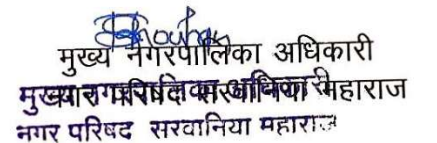 मुख्य नगरपालिका अधिकारी
नगर परिषद सरवानिया महाराज
मुख्य नगरपालिका अधिकारी
नगर परिषद सरवानिया महाराज